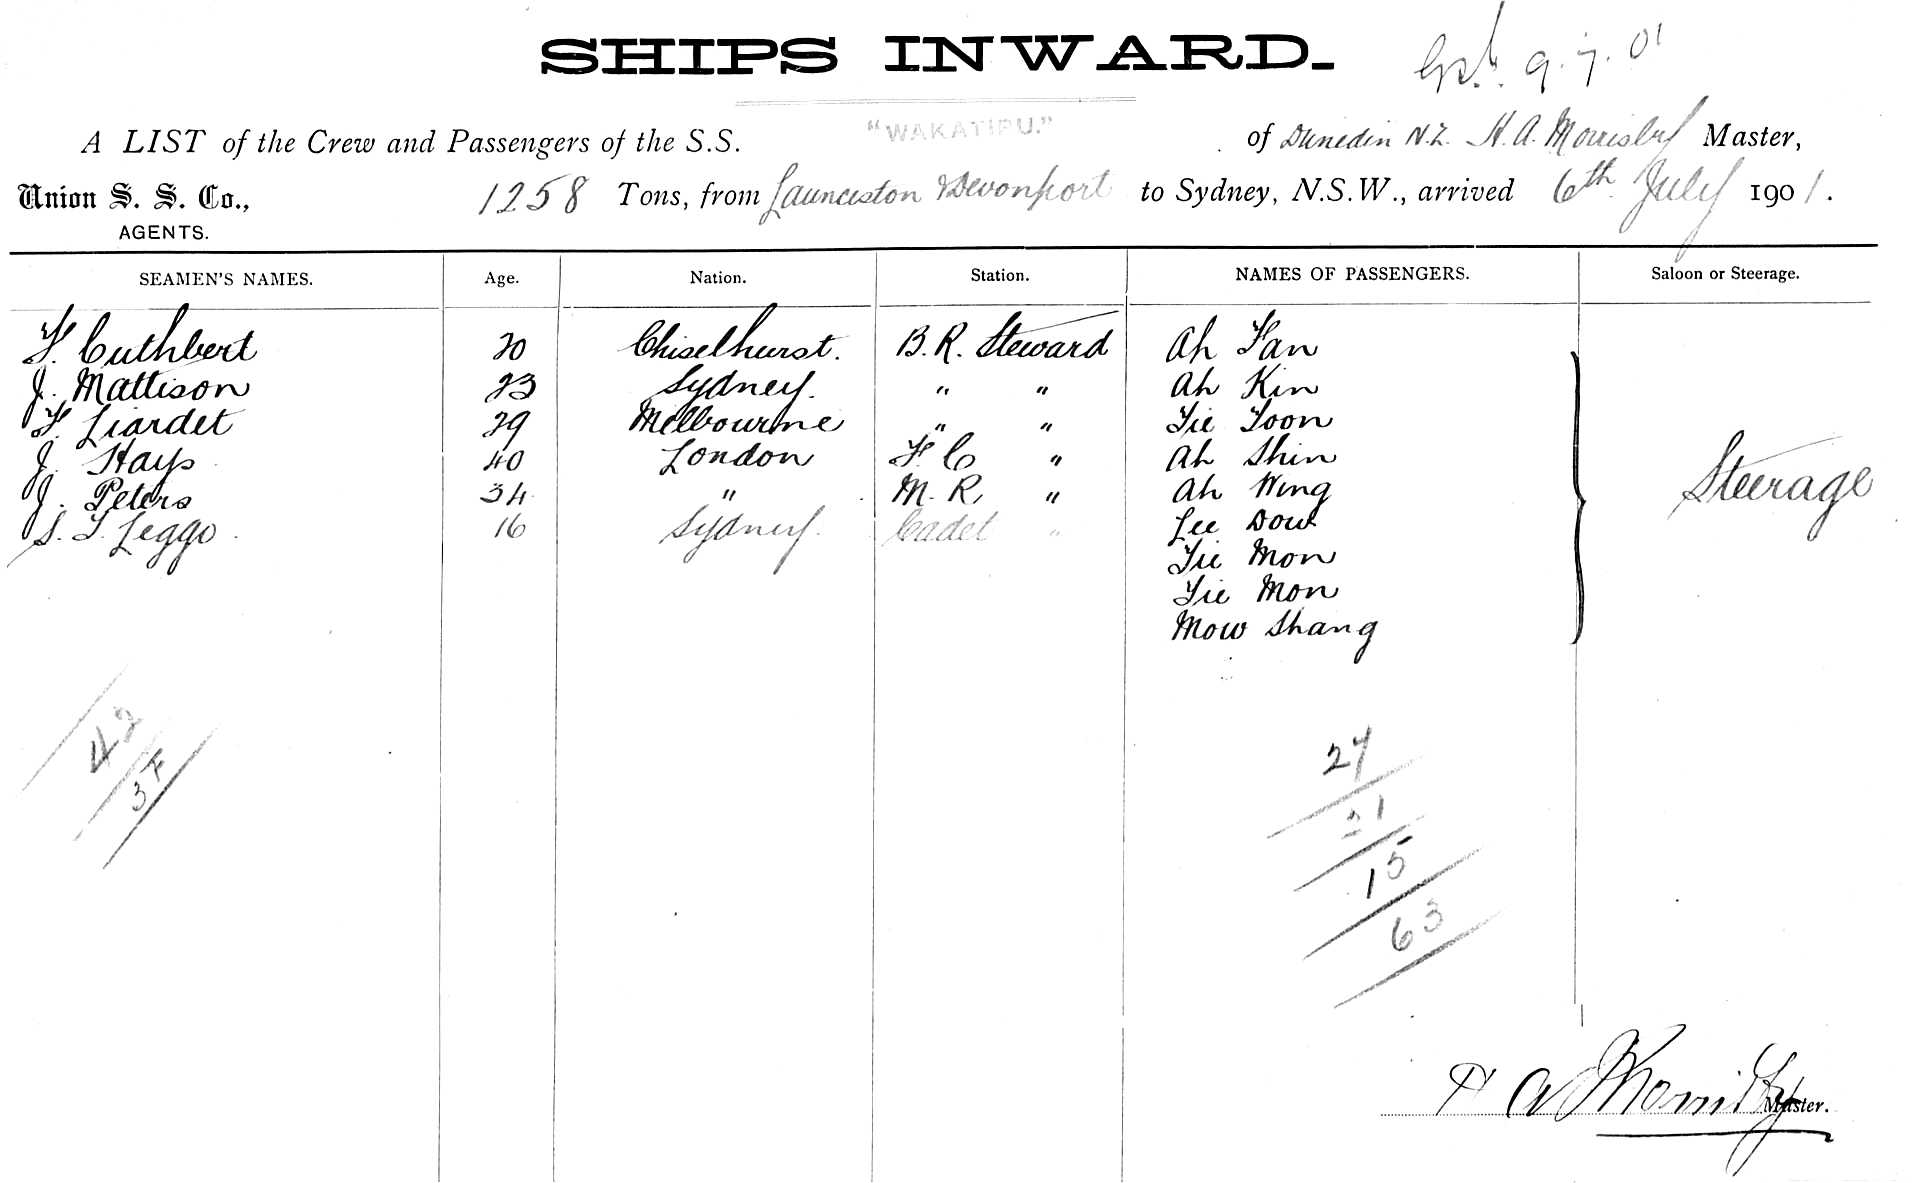 SHIPS INWARD.
9.7.01
A LIST of the Crew and Passengers of the S.S. "WAKATIPU." of Dunedin N.Z. H. A. Morrisby Master,
Union S. S. Co., 1258 Tons, from Launceston & Devonport to Sydney, N.S.W., arrived 6th July 1901.
AGENTS.
SEAMEN'S NAMES. Age. Nation. Station. NAMES OF PASSENGERS. Saloon or Steerage.
F. Cuthbert 20 Chiselhurst. B. R. Steward Ah Fan
J. Mattison 23 Sydney. " " Ah Kin
F. Liardet 29 Melbourne " " Tie Toon
J. Hays 40 London F C " Ah Shin
J. Peters 34 " M. R. " Ah Wing Steerage
S. T. Leggo 16 Sydney. Cadet " Lee Dow
Tie Mon
Tie Mon
Mow Shang
42
27
21
15
63
H A Morrisby Master.